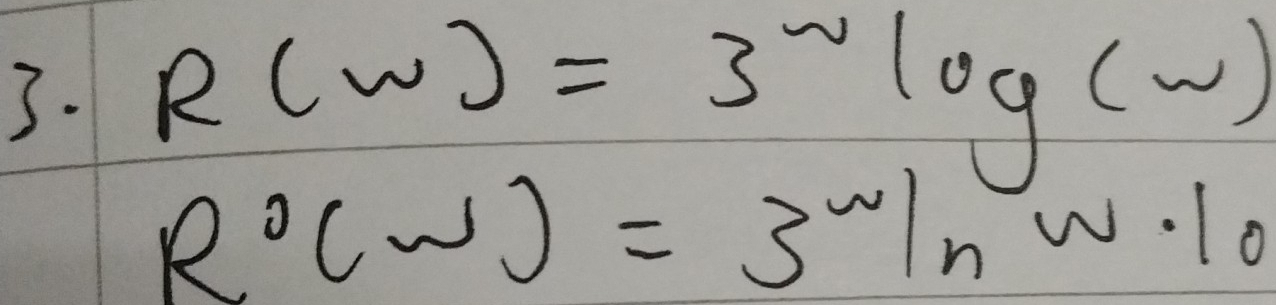 3. R(w) = 3^w log(w)
R⁰(w) = 3^w ln w · 10